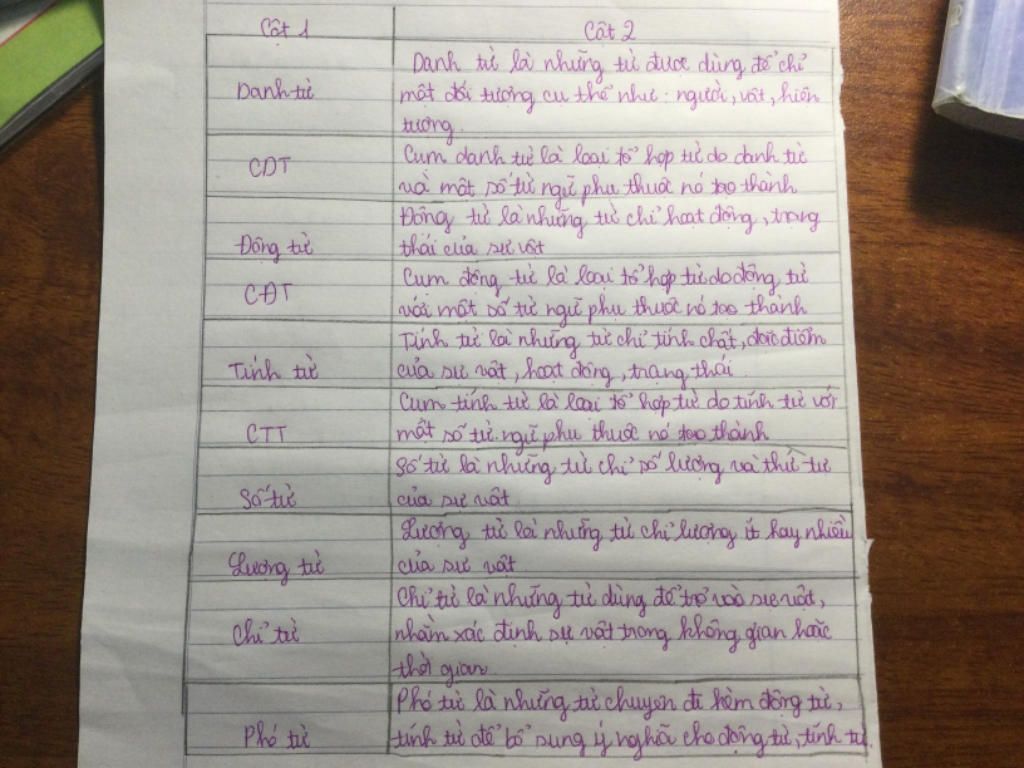 Cột 1 Cột 2
Danh từ là những từ được dùng để chỉ
Danh từ một đối tượng cụ thể như: người, vật, hiện
tượng.
Cụm danh từ là loại tổ hợp từ do danh từ
CDT và một số từ ngữ phụ thuộc nó tạo thành
Động từ là những từ chỉ hoạt động, trạng
Động từ thái của sự vật
Cụm động từ là loại tổ hợp từ do động từ
CĐT với một số từ ngữ phụ thuộc nó tạo thành
Tính từ là những từ chỉ tính chất, đặc điểm
Tính từ của sự vật, hoạt động, trạng thái
Cụm tính từ là loại tổ hợp từ do tính từ với
CTT một số từ ngữ phụ thuộc nó tạo thành
Số từ là những từ chỉ số lượng và thứ tự
Số từ của sự vật
Lượng từ là những từ chỉ lượng ít hay nhiều
Lượng từ của sự vật
Chỉ từ là những từ dùng để trỏ vào sự vật,
Chỉ từ nhằm xác định sự vật trong không gian hoặc
thời gian
Phó từ là những từ chuyên đi kèm động từ,
Phó từ tính từ để bổ sung ý nghĩa cho động từ, tính từ.